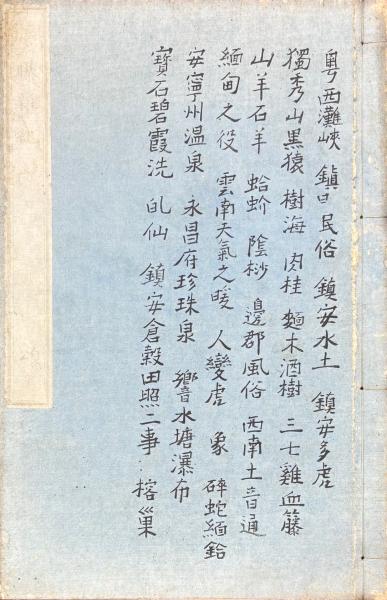 粤西灘峽 鎮日民俗 鎮安水土 鎮安多虎
獨秀山黑猿 樹海 肉桂 麵木酒樹 三七雞血籐
山羊石羊 蛤蚧 蔭桫 邊郡風俗 西南土音通
緬甸之役 雲南天氣之暖 人變虎 象 碎蛇緬鉿
安寧州温泉 永昌府珍珠泉 響水塘瀑布
寶石碧霞洗 乩仙 鎮安倉穀田照二事 榕巢